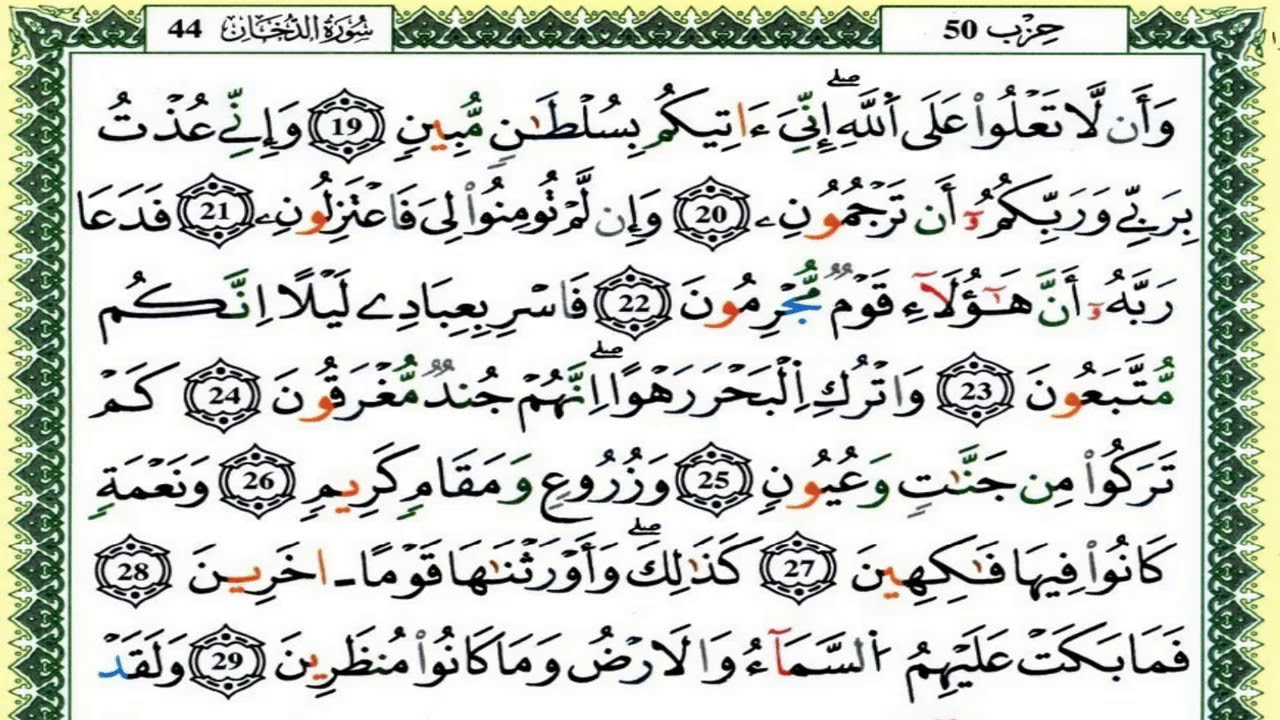 حِزْب 50
سُورَةُ الدُّخَان 44
وَأَن لَّا تَعْلُواْ عَلَى ٱللَّهِۖ إِنِّيَ ءَاتِيكُم بِسُلْطَٰنٖ مُّبِينٖ 19 وَإِنِّے عُذْتُ
بِرَبِّے وَرَبِّكُمُۥٓ أَن تَرْجُمُونِۦ 20 وَإِن لَّمْ تُومِنُواْ لِى فَاعْتَزِلُونِۦ 21 فَدَعَا
رَبَّهُۥٓ أَنَّ هَٰٓؤُلَآءِ قَوْمٞ مُّجْرِمُونَ 22 فَاسْرِ بِعِبَادِے لَيْلًا اِنَّكُم
مُّتَّبَعُونَ 23 وَاتْرُكِ اِلْبَحْرَ رَهْوًاۖ اِنَّهُمْ جُندٞ مُّغْرَقُونَ 24 كَمْ
تَرَكُواْ مِن جَنَّٰتٖ وَعُيُونٖ 25 وَزُرُوعٖ وَمَقَامٖ كَرِيمٖ 26 وَنَعْمَةٖ
كَانُواْ فِيهَا فَٰكِهِينَ 27 كَذَٰلِكَۖ وَأَوْرَثْنَٰهَا قَوْمًا ـ اخَرِينَ 28
فَمَا بَكَتْ عَلَيْهِمُ اُلسَّمَآءُ وَالَارْضُ وَمَا كَانُواْ مُنظَرِينَ 29 وَلَقَدْ